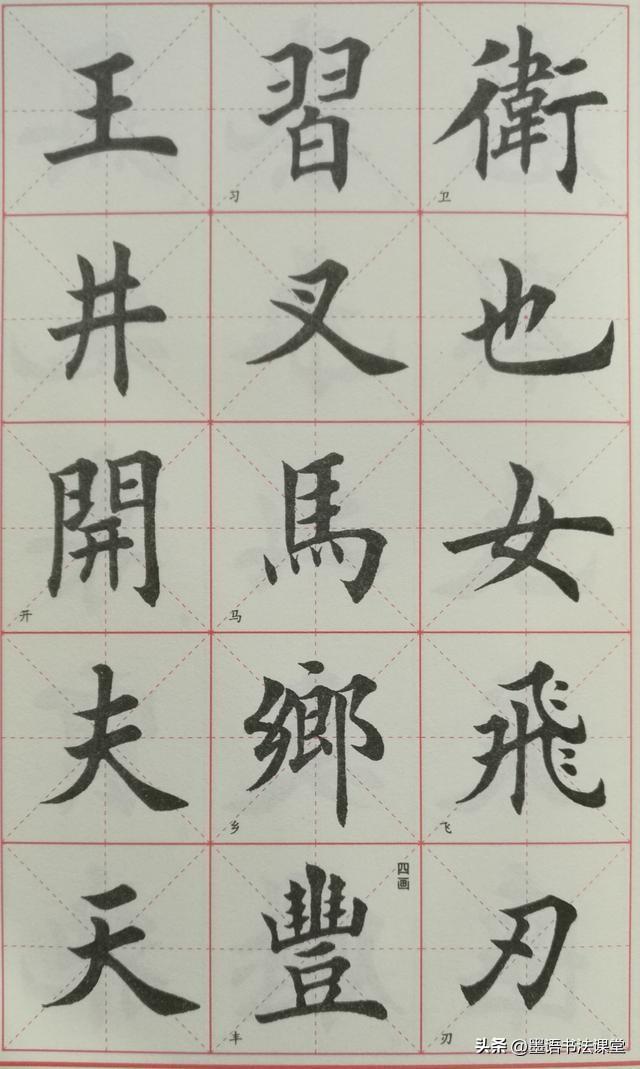 衛
卫
也
女
飛
飞
刃
刃
習
习
叉
馬
马
鄉
乡
四画
豐
丰
王
井
開
开
夫
天
头条 @墨语书法课堂